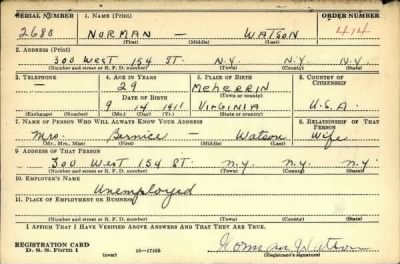 SERIAL NUMBER 1. NAME (Print) ORDER NUMBER
2680 NORMAN — WATSON 414
(First) (Middle) (Last)
2. ADDRESS (Print)
300 WEST 154 ST. N.Y. N.Y.
(Number and street or R. F. D. number) (Town) (County) (State)
3. TELEPHONE 4. AGE IN YEARS 5. PLACE OF BIRTH 6. COUNTRY OF CITIZENSHIP
— 29 MEHERRIN
DATE OF BIRTH (Town or county)
9 14 1911 VIRGINIA U.S.A.
(Exchange) (Number) (Mo.) (Day) (Yr.) (State or country)
7. NAME OF PERSON WHO WILL ALWAYS KNOW YOUR ADDRESS 8. RELATIONSHIP OF THAT PERSON
Mrs. Bernice — Watson Wife
(Mr., Mrs., Miss) (First) (Middle) (Last)
9. ADDRESS OF THAT PERSON
300 West 154 ST. N.Y. N.Y.
(Number and street or R. F. D. number) (Town) (County) (State)
10. EMPLOYER'S NAME
Unemployed
11. PLACE OF EMPLOYMENT OR BUSINESS
(Number and street or R. F. D. number) (Town) (County) (State)
I AFFIRM THAT I HAVE VERIFIED ABOVE ANSWERS AND THAT THEY ARE TRUE.
REGISTRATION CARD
D. S. S. Form 1 (over) 16—17105 Norman Watson
(Registrant's signature)